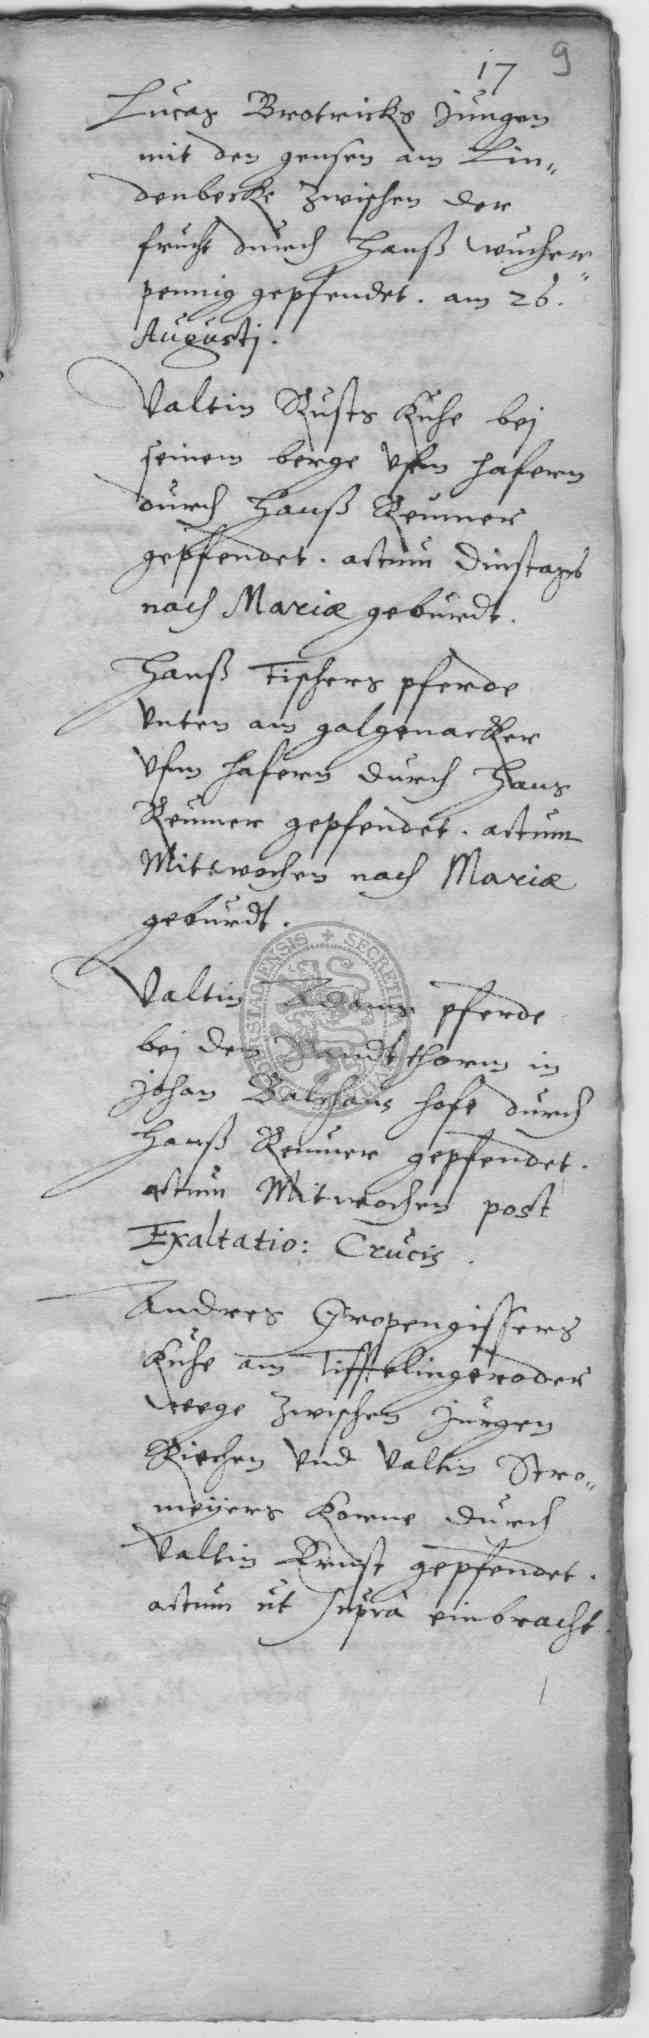 17 9
Lucas Brotricks Jungen
mit den gensen am Lin„
denbecke zwischen der
frucht durch Hanß wucher„
pennig gepfendet. am 26.
Augusti.
Valtin Rusts Kuhe bej
seinem berge vfm hafern
durch Hanß Reumer
gepfendet. actum Dinstags
nach Mariæ geburdt.
Hanß Tischers pferde
vnten am galgenacker
vfm hafern durch Hans
Reumer gepfendet. actum
Mittwochen nach Mariæ
geburdt.
Valtin Adams pferde
bej dem thorm in
Johan Balthaus hofe durch
Hanß Reumer gepfendet.
actum Mitwochen post
Exaltatio: Crucis.
Andres Gropengissers
Kuhe am Tifftelingeroder
wege zwischen Jurgen
Richen vnd Valtin Stro„
meyers Korne durch
Valtin Ernst gepfendet.
actum ut supra einbracht.